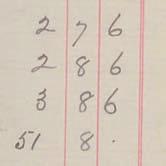 2 7 6
2 8 6
3 8 6
51 8 .